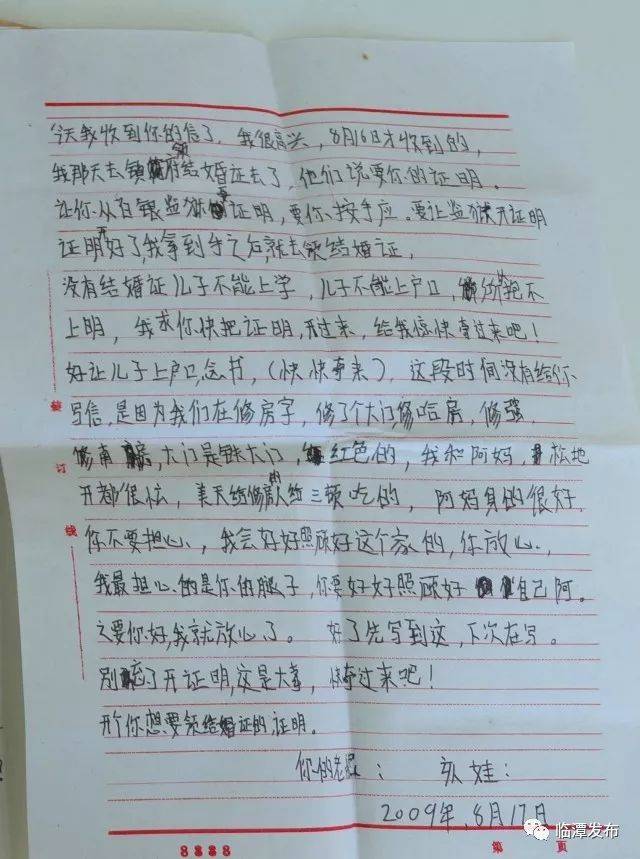 今天我收到你的信了，我很高兴，8月16日才收到的，
我那天去镇府领结婚证去了，他们说要你的证明，
让你从白银监狱开证明，要你按手应。要让监狱开证明
证明开好了，我拿到手之后，就去领结婚证，
没有结婚证儿子不能上学，儿子不能上户口，
上明，我求你快把证明，开过来，给我你快寄过来吧！
好让儿子上户口，念书，（快快寄来），这段时间没有给你
写信，是因为我们在修房子，修了个大门，修 房，修强，
修南房，大门是铁大门，红色的，我和阿妈，松地
开都很忙，美天给修房的人给三顿吃的，阿妈身的很好，
你不要担心，我会好好照顾好这个家的，你放心，
我最担心的是你的腿子，你要好好照顾好自己阿。
之要你好，我就放心了。 好了先写到这，下次在写。
别忘了开证明，这是大事，快寄过来吧！
开个你想要领结婚证的证明。
你的老婆： 娃：
2009年，8月17日
装
订
线
8888 第 页
临潭发布